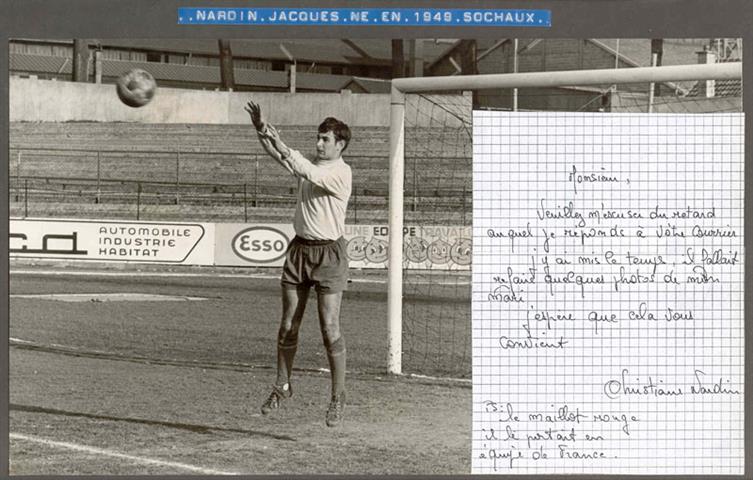 ..NARDIN.JACQUES.NE.EN.1949.SOCHAUX..
AUTOMOBILE
INDUSTRIE
HABITAT
Esso
UNE EQUIPE TRAVAIL
Monsieur,
Veuillez m'excuser du retard
auquel je réponds à Votre Courrier
j'y ai mis le temps, il fallait
refaire quelques photos de mon
mari
j'espère que cela vous
convient
Christiane Nardin
PS: le maillot rouge
il le portait en
équipe de France.